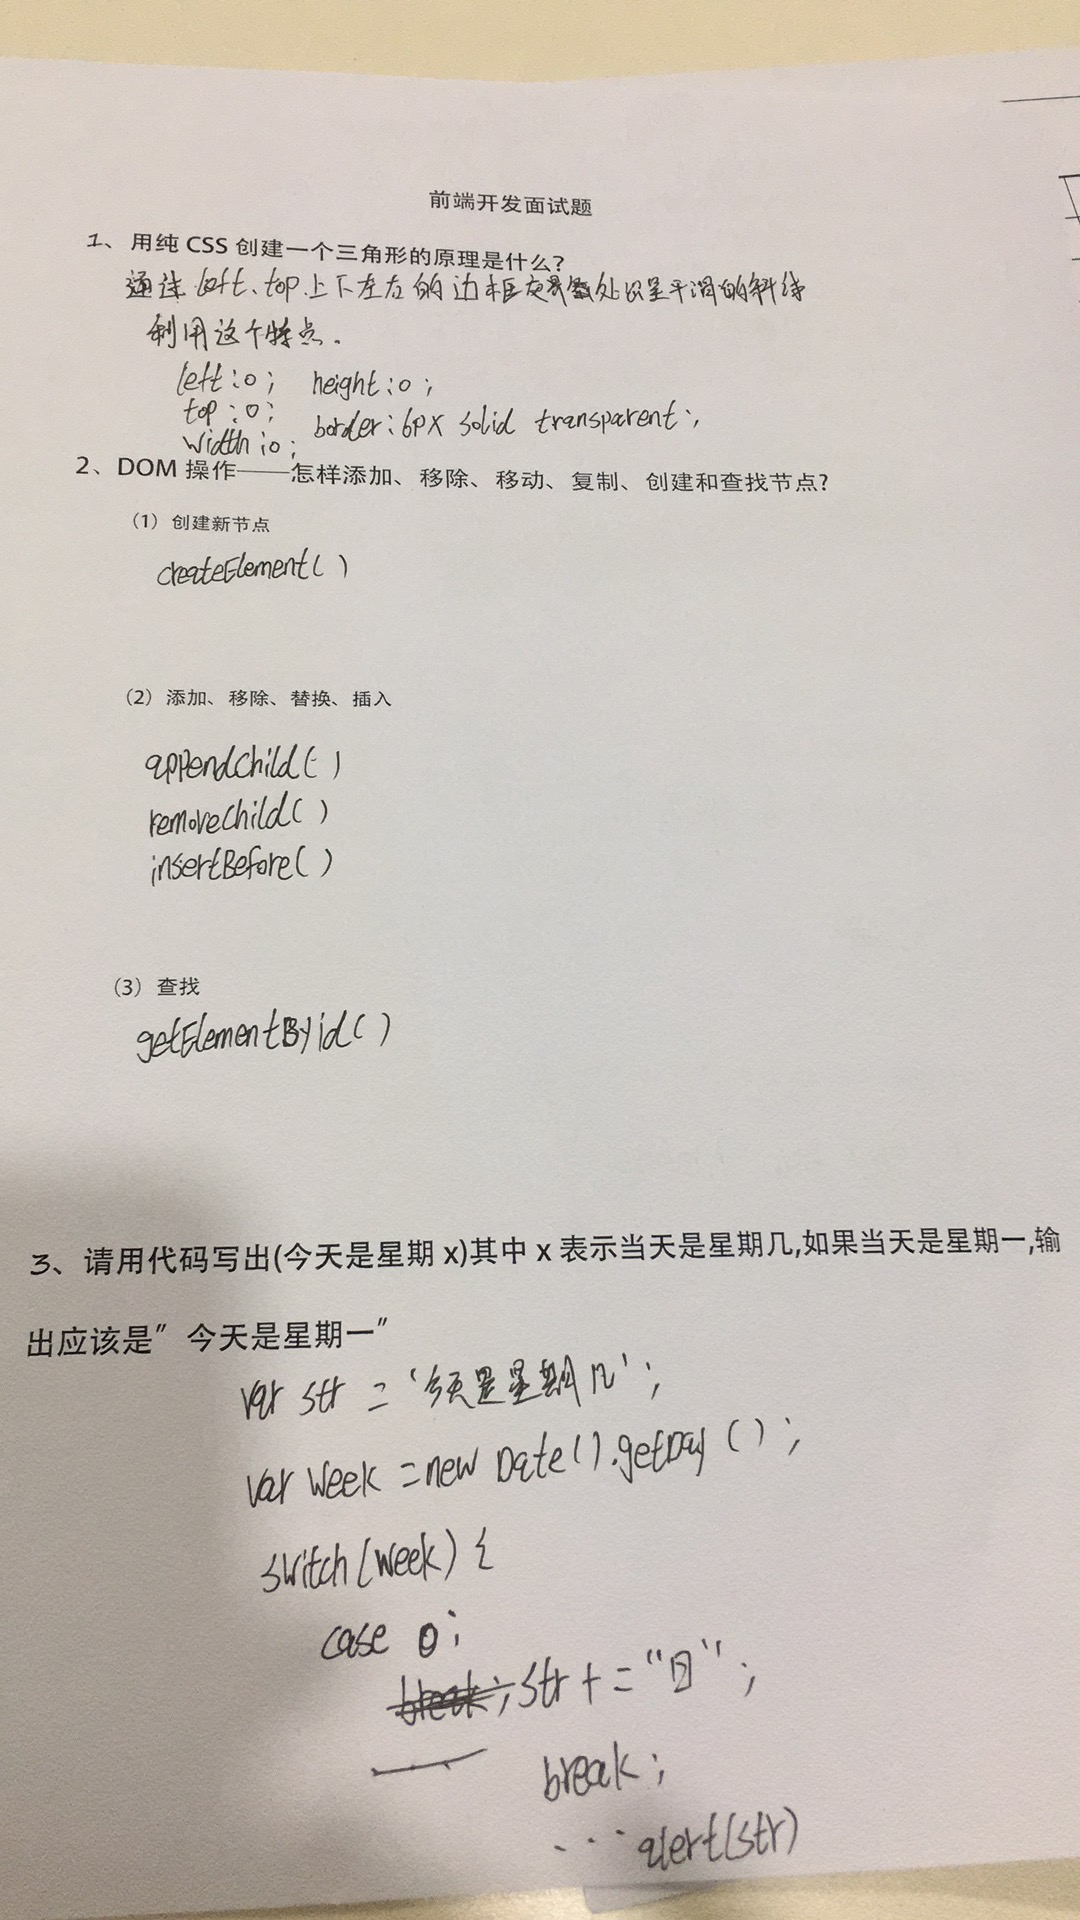 前端开发面试题
1、用纯 CSS 创建一个三角形的原理是什么?
通过 left、top 上下左右的边框交界处以呈平滑的斜线
利用这个特点.
left:0; height:0;
top:0; border:6px solid transparent;
width:0;
2、DOM 操作——怎样添加、移除、移动、复制、创建和查找节点?
（1）创建新节点
createElement( )
（2）添加、移除、替换、插入
appendChild( )
removeChild( )
insertBefore( )
（3）查找
getElementByid( )
3、请用代码写出(今天是星期 x)其中 x 表示当天是星期几,如果当天是星期一,输
出应该是”今天是星期一”
var str = '今天是星期几';
var week = new Date().getDay ( );
switch(week) {
case 0:
str += "日";
break;
... alert(str)